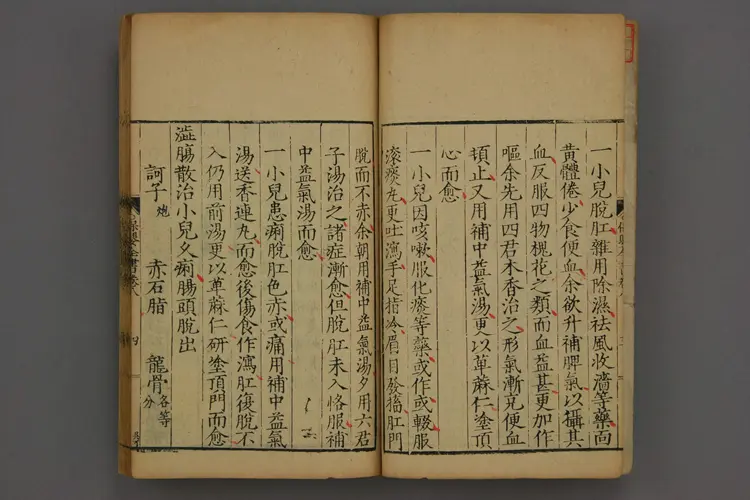 一小兒脫肛雜用除濕祛風收濇等藥面
黃體倦少食便血余欲升補脾氣以攝其
血反服四物槐花之類而血益甚更加作
嘔余先用四君木香治之形氣漸充便血
頓止又用補中益氣湯更以萆蔴仁塗頂
心而愈
一小兒因咳嗽服化痰等藥或作或輟服
滚痰丸更吐瀉手足指冷眉目發搐肛門
脫而不赤余朝用補中益氣湯夕用六君
子湯治之諸症漸愈但脫肛未入恪服補
中益氣湯而愈
一小兒患痢脫肛色赤或痛用補中益氣
湯送香連丸而愈後傷食作瀉肛復脫不
入仍用前湯更以萆蔴仁研塗頂門而愈
澁腸散治小兒久痢腸頭脫出
訶子炮 赤石脂 龍骨各等分